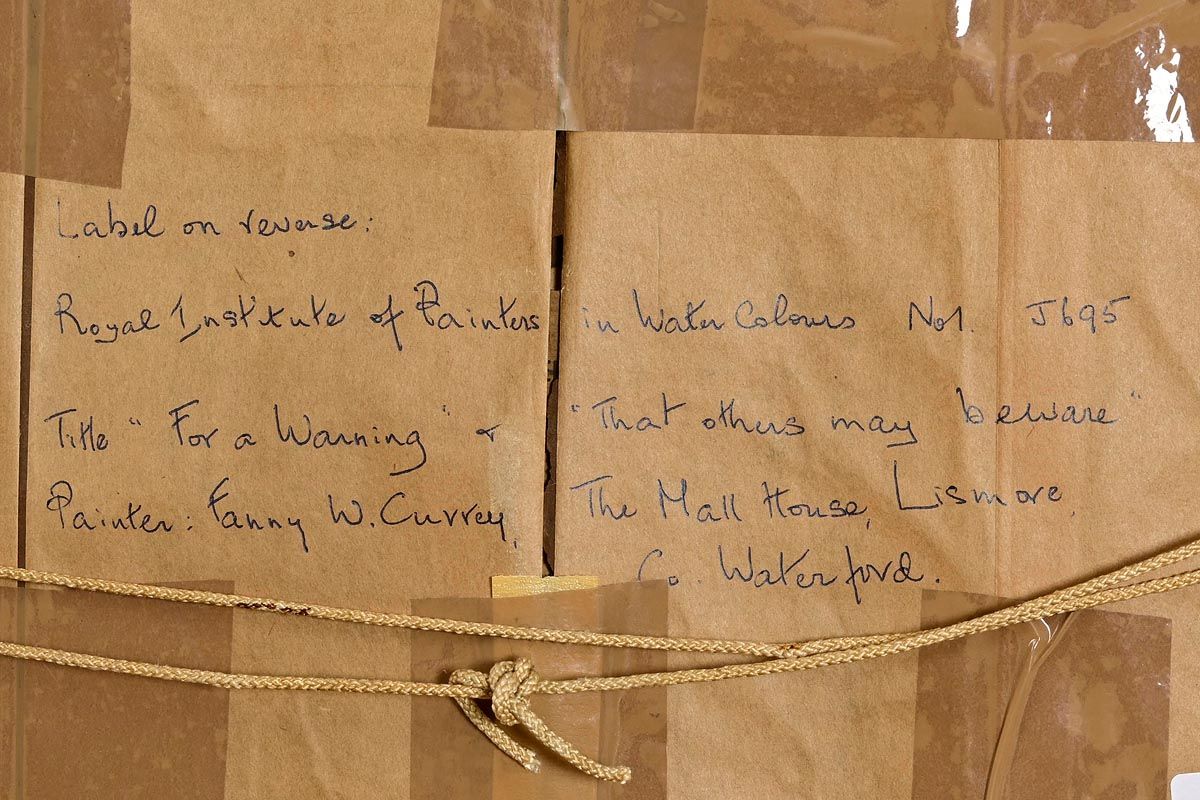 Label on reverse:
Royal Institute of Painters in Water Colours No1. J695
Title " For a Warning " & "That others may beware"
Painter: Fanny W. Currey, The Mall House, Lismore,
Co. Waterford.